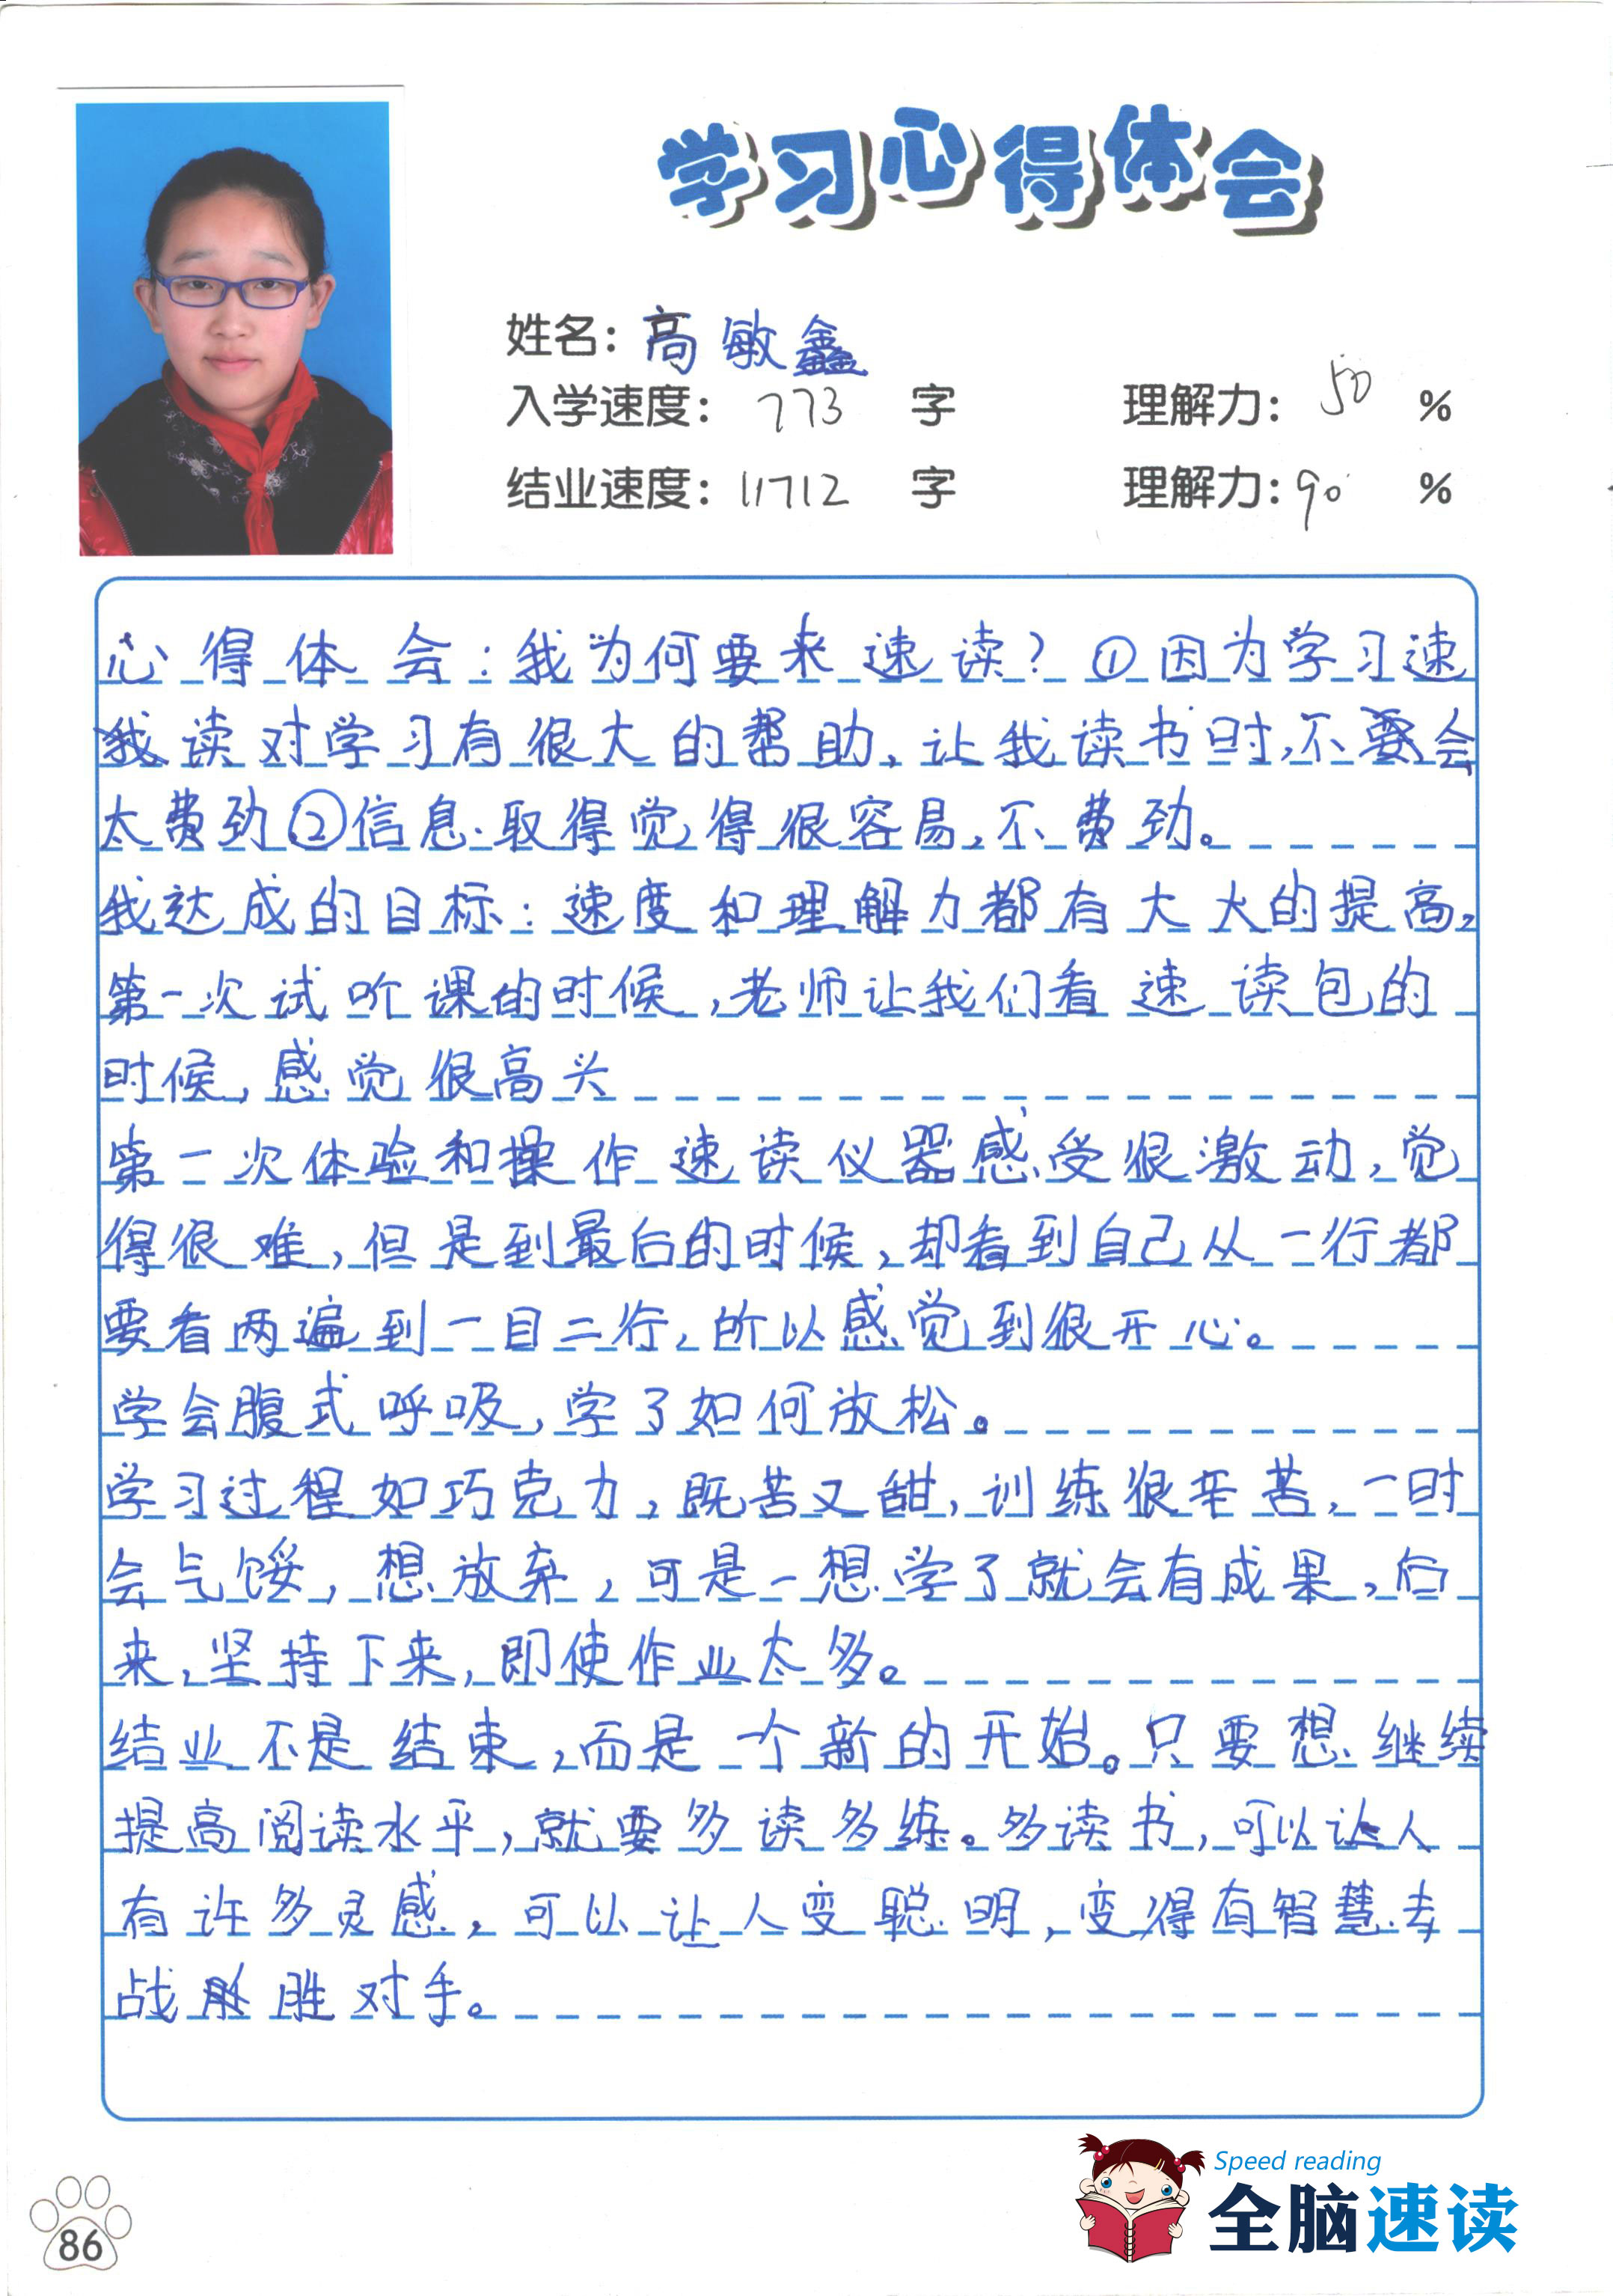 学习心得体会
姓名：高敏鑫
入学速度：773 字 理解力：50 %
结业速度：11712 字 理解力：90 %
心得体会：我为何要来速读？①因为学习速
读对学习有很大的帮助，让我读书时，不会
太费劲②信息取得觉得很容易，不费劲。
我达成的目标：速度和理解力都有大大的提高，
第一次试听课的时候，老师让我们看速读包的
时候，感觉很高头
第一次体验和操作速读仪器感受很激动，觉
得很难，但是到最后的时候，却看到自己从一行都
要看两遍到一目二行，所以感觉到很开心。
学会腹式呼吸，学了如何放松。
学习过程如巧克力，既苦又甜，训练很辛苦，一时
会气馁，想放弃，可是一想学了就会有成果，后
来，坚持下来，即使作业太多。
结业不是结束，而是一个新的开始。只要想继续
提高阅读水平，就要多读多练。多读书，可以让人
有许多灵感，可以让人变聪明，变得有智慧去
战胜对手。
86
Speed reading
全脑速读